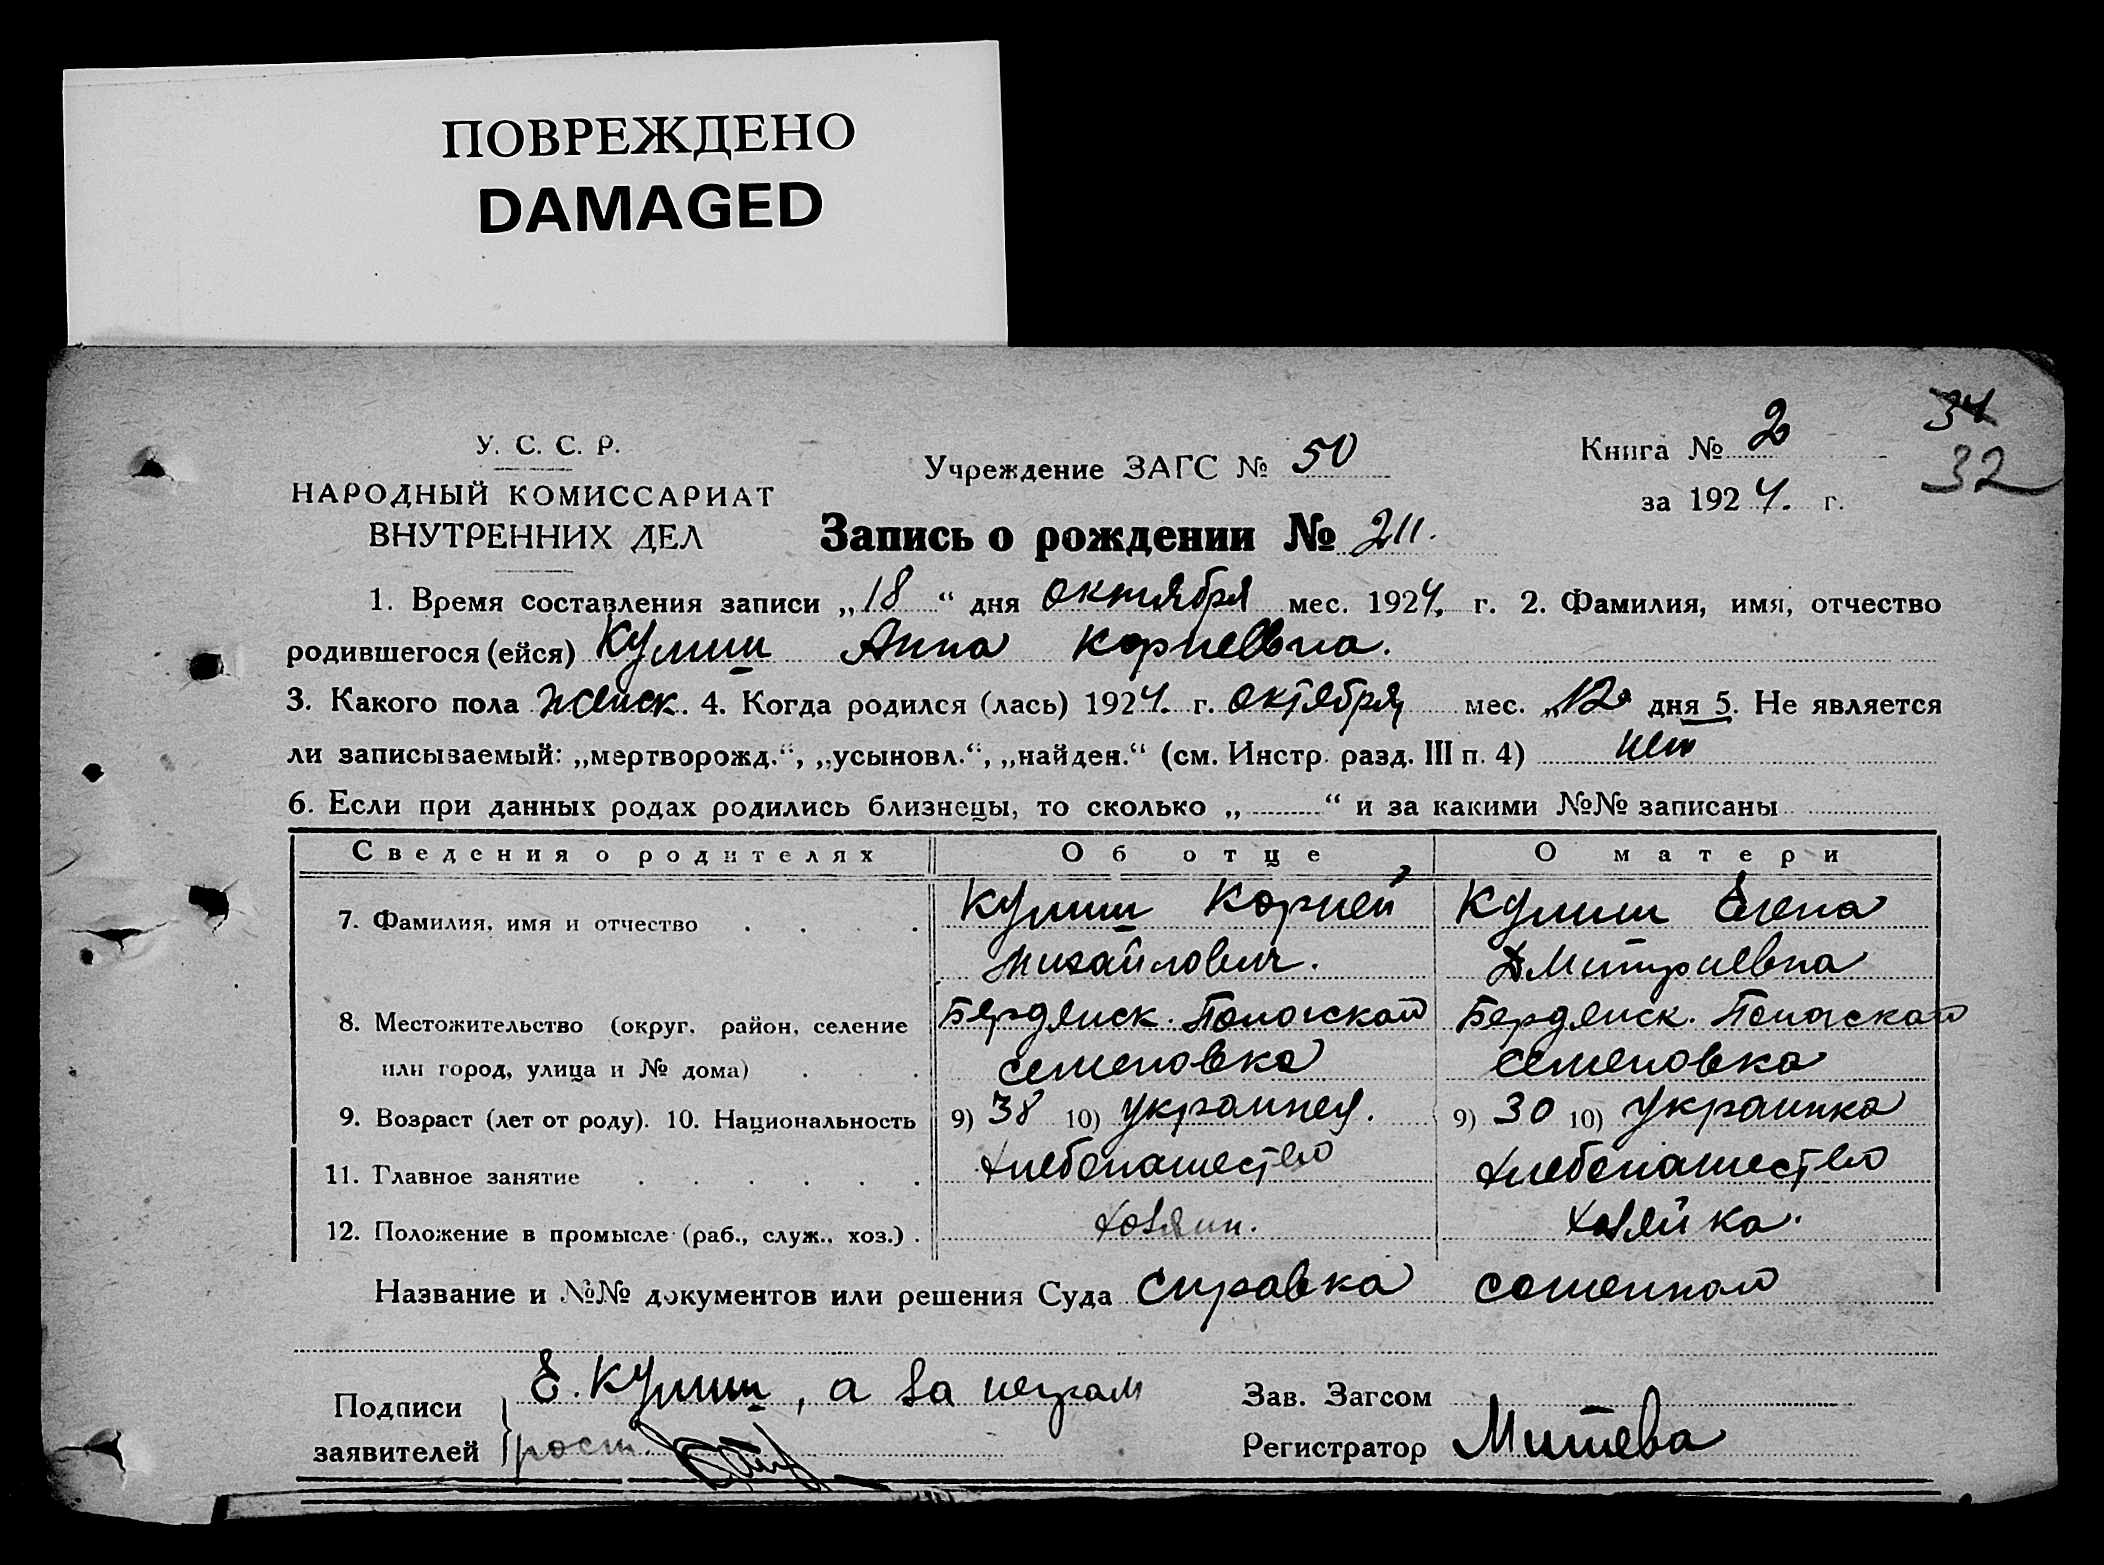 ПОВРЕЖДЕНО
DAMAGED
34
32
У. С. С. Р.
НАРОДНЫЙ КОМИССАРИАТ
ВНУТРЕННИХ ДЕЛ
Учреждение ЗАГС № 50
Книга № 2
за 1924. г.
Запись о рождении № 211.
1. Время составления записи „18“ дня октября мес. 1924. г. 2. Фамилия, имя, отчество
родившегося (ейся) Кулиш Анна Корневвна.
3. Какого пола женск. 4. Когда родился (лась) 1924. г. октября мес. „12“ дня 5. Не является
ли записываемый: „мертворожд.“, „усыновл.“, „найден.“ (см. Инстр. разд. III п. 4) нет
6. Если при данных родах родились близнецы, то сколько „ “ и за какими №№ записаны
Сведения о родителях Об отце О матери
7. Фамилия, имя и отчество Кулиш Корней Кулиш Елена
Михайлович. Дмитриевна
8. Местожительство (округ, район, селение Бердянск. Пологской Бердянск. Пологской
или город, улица и № дома) Семеновка Семеновка
9. Возраст (лет от роду). 10. Национальность 9) 38 10) украинец. 9) 30 10) украинка
11. Главное занятие хлебопашество хлебопашество
12. Положение в промысле (раб., служ., хоз.) хозяин. хозяйка.
Название и №№ документов или решения Суда Справка
Подписи Е. Кулиш, а за неграм
заявителей рост.
Зав. Загсом
Регистратор Митева